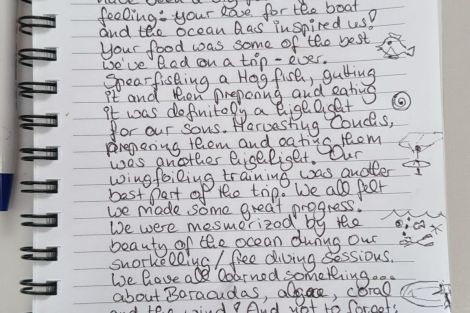 feeling: your love for the boat
and the ocean has inspired us!
Your food was some of the best
we've had on a trip - ever.
Spearfishing a Hogfish, gutting
it and then preparing and eating
it was definitely a highlight
for our sons. Harvesting Conchs,
preparing them and eating them
was another highlight. Our
wingfoiling training was another
best part of the trip. We all felt
we made some great progress.
We were mesmerized by the
beauty of the ocean during our
snorkelling / free diving sessions.
We have all learned something...
about Baracudas, algae, coral
and the wind! And not to forget: